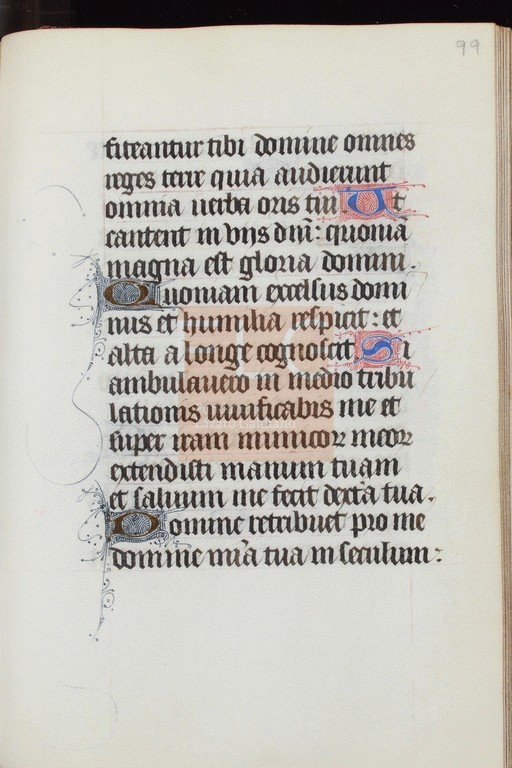 99
fiteantur tibi domine omnes
reges terre quia audierunt
omnia uerba oris tui Ut
cantent in viis dni: quoniā
magna est gloria domini.
Quoniam excelsus domi
nus et humilia respicit: et
alta a longe cognoscit Si
ambulauero in medio tribu
lationis uiuificabis me et
super iram inimicoꝝ meoꝝ
extendisti manum tuam
et saluum me fecit dext̄a tua.
Domine retribuet pro me
domine mīa tua in seculum: